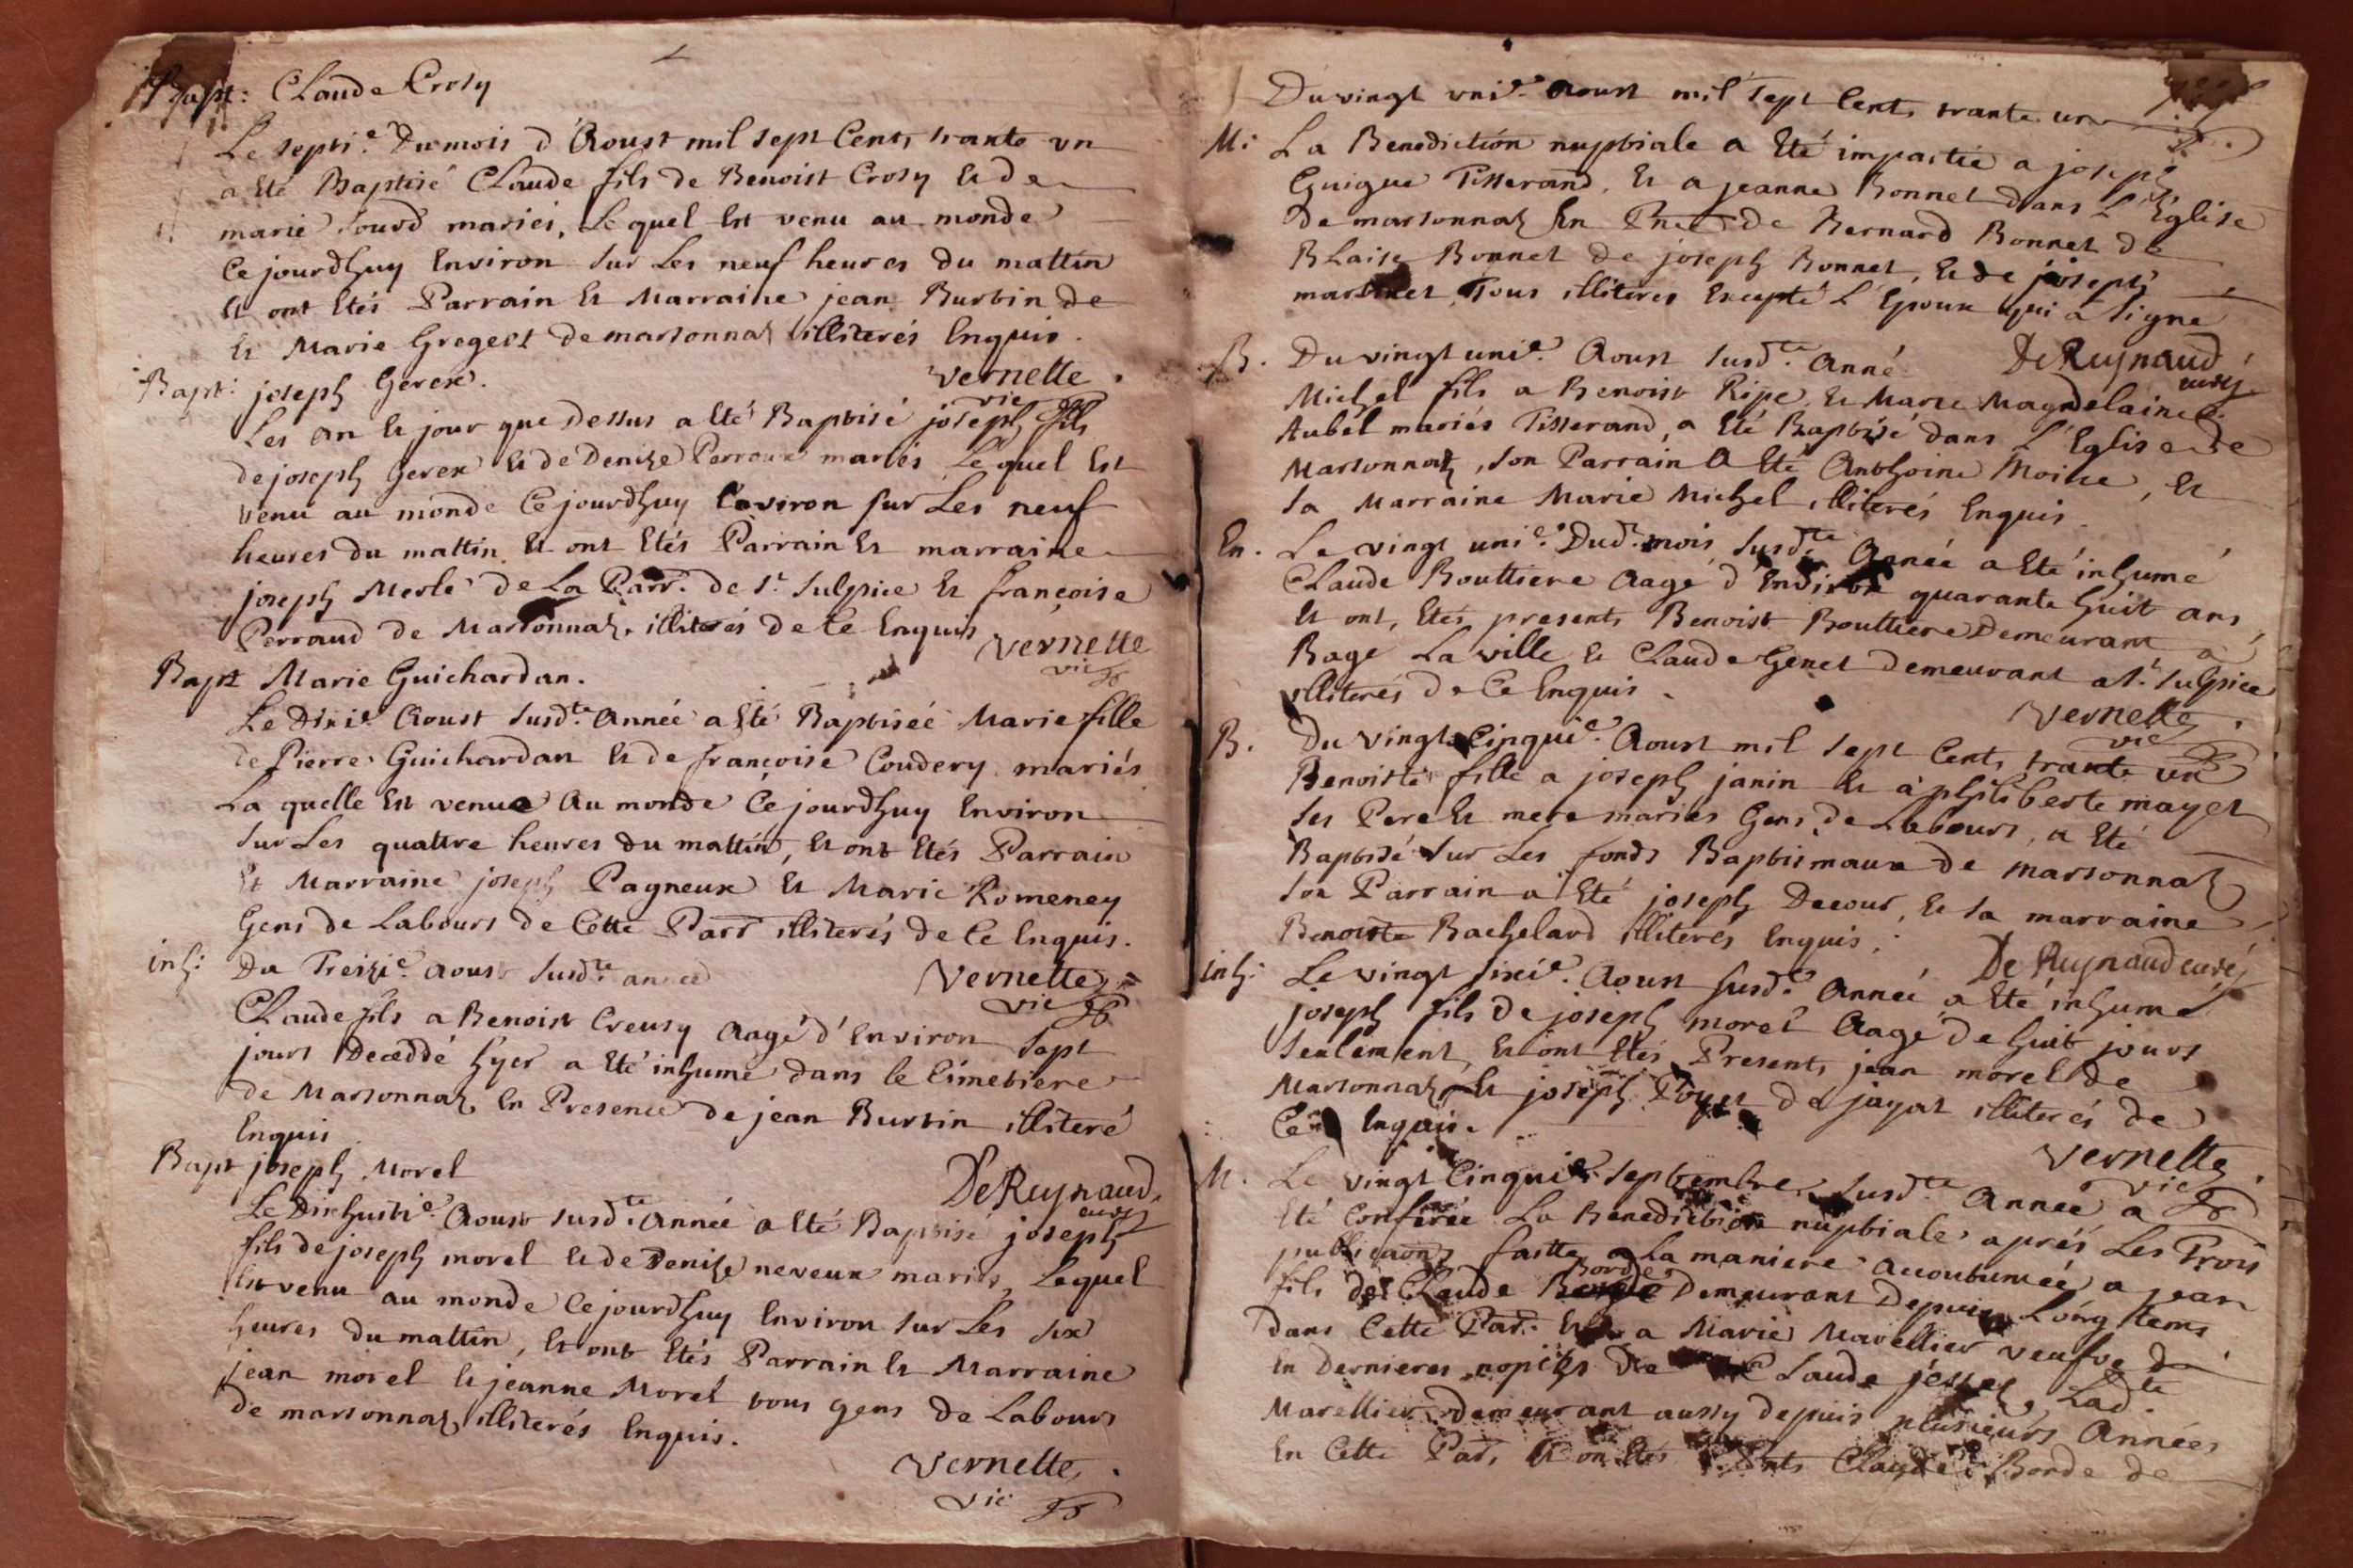 Bapt: Claude Crosy
Le septi.e Du mois d'Aoust mil sept Cents trante vn
a Eté Baptisé Claude fils de Benoist Crosy Et de
marie Sourd mariés, Le quel Est venu au monde
Ce jourdhuy Environ Sur Les neuf heures du mattin
Et ont Etés Parrain Et Marraine jean Burtin de
Et Marie Gregert de marsonnas illiterés Enquis.
Vernette
vic
Bapt: joseph Gerex.
Les an Et jour que Dessus a Eté Baptisé joseph fils
de joseph Gerex Et de Denize Perroux mariés Le quel Est
venu au monde Ce jourdhuy Environ sur Les neuf
heures du mattin Et ont Etés Parrain Et marraine
joseph Merle de La Parr. de St. Sulpice Et françoise
Perraud de Marsonnas, illiterés de Ce Enquis
Vernette
vic
Bapt Marie Guichardan.
Le Dixi.e Aoust Susd.te Année a Eté Baptiseé Marie fille
de Pierre Guichardan Et de françoise Coudery mariés
La quelle Est venue Au monde Ce jourdhuy Environ
Sur Les quattre heures du mattin, Et ont Etés Parrain
Et Marraine joseph Pagneux Et Marie Romeney
Gens de Labours de Cette Parr illiterés de Ce Enquis.
Vernette
vic
inh: Du Treizi.e Aoust Susd.te année
Claude fils a Benoist Creusy Aagé d'Environ Sept
jours Deceddé hyer a Eté inhumé dans le Cimetiere
de Marsonnas, En Presence de jean Burtin illiteré
Enquis
De Reynaud
curé
Bapt joseph Morel
Le Dixhuiti.e Aoust Susd.te Année a Eté Baptisé joseph
fils de joseph morel Et de Denize neveux mariés, Lequel
Est venu au monde Ce jourdhuy Environ Sur Les six
heures du mattin, Et ont Etés Parrain Et Marraine
jean morel Et jeanne Morel tous gens de Labours
de marsonnas, illiterés Enquis.
Vernette
vic
Du vingt vni.e Aoust mil Sept Cents trante un
M: La Benediction nuptiale a Eté impartie a joseph
Guigue Tisserand, Et a jeanne Bonnet dans L'Eglise
de marsonnas En Pnce de Bernard Bonnet de
Blaise Bonnet de joseph Bonnet, Et de joseph
martinet Tous illiteres Excepté L'Epoux qui a Signé
De Reynaud
curé
B. Du vingt uni.e Aoust Susd.te Anné
Michel fils a Benoist Ripe Et Marie Magdelaine
Aubel mariés Tisserand, a Eté Baptisé dans L'Eglise de
Marsonnas, Son Parrain a Eté Anthoine Moine, Et
Sa Marraine Marie Michel illiterés Enquis
En. Le vingt uni.e Dud. mois Susd.te Année a Eté inhumé
Claude Bouttiere Aagé d'Environ quarante huit ans,
Et ont Etés presents Benoist Bouttiere Demeurant a
Bagé La ville Et Claude Genet demeurant a St. Sulpice
illiterés de Ce Enquis.
Vernette
vic
B. Du vingt Cinqui.e Aoust mil Sept Cents trante un
Benoiste fille a joseph janin Et a philiberte mayet
Ses Pere Et mere mariés Gens de Labours, a Eté
Baptisé Sur Les fonds Baptismaux de marsonnas
Son Parrain a Eté joseph Decour, Et Sa marraine
Benoiste Bachelard illiterés Enquis.
De Reynaud curé
inh: Le vingt Sixi.e Aoust Susd.te Année a Eté inhumé
joseph fils de joseph morel Aagé de huit jours
Seulement, Et ont Etés Presents jean morel de
Marsonnas Et joseph de jayat illiterés de
Ce Enquis.
Vernette
vic
M. Le vingt Cinqui.e Septembre Susd.te Année a
Eté Conferée La Benediction nuptiale aprés Les Trois
publicaons faitte a La maniere accoutumée a jean
fils de Claude Borde Demeurant Depuis Long tems
dans Cette Par. Et a Marie Marellier veufve de
En Dernieres nopces de Claude Lad.te
Marellier demeurant aussy depuis plusieurs Années
En Cette Par. Et ont Etés Claude Borde de